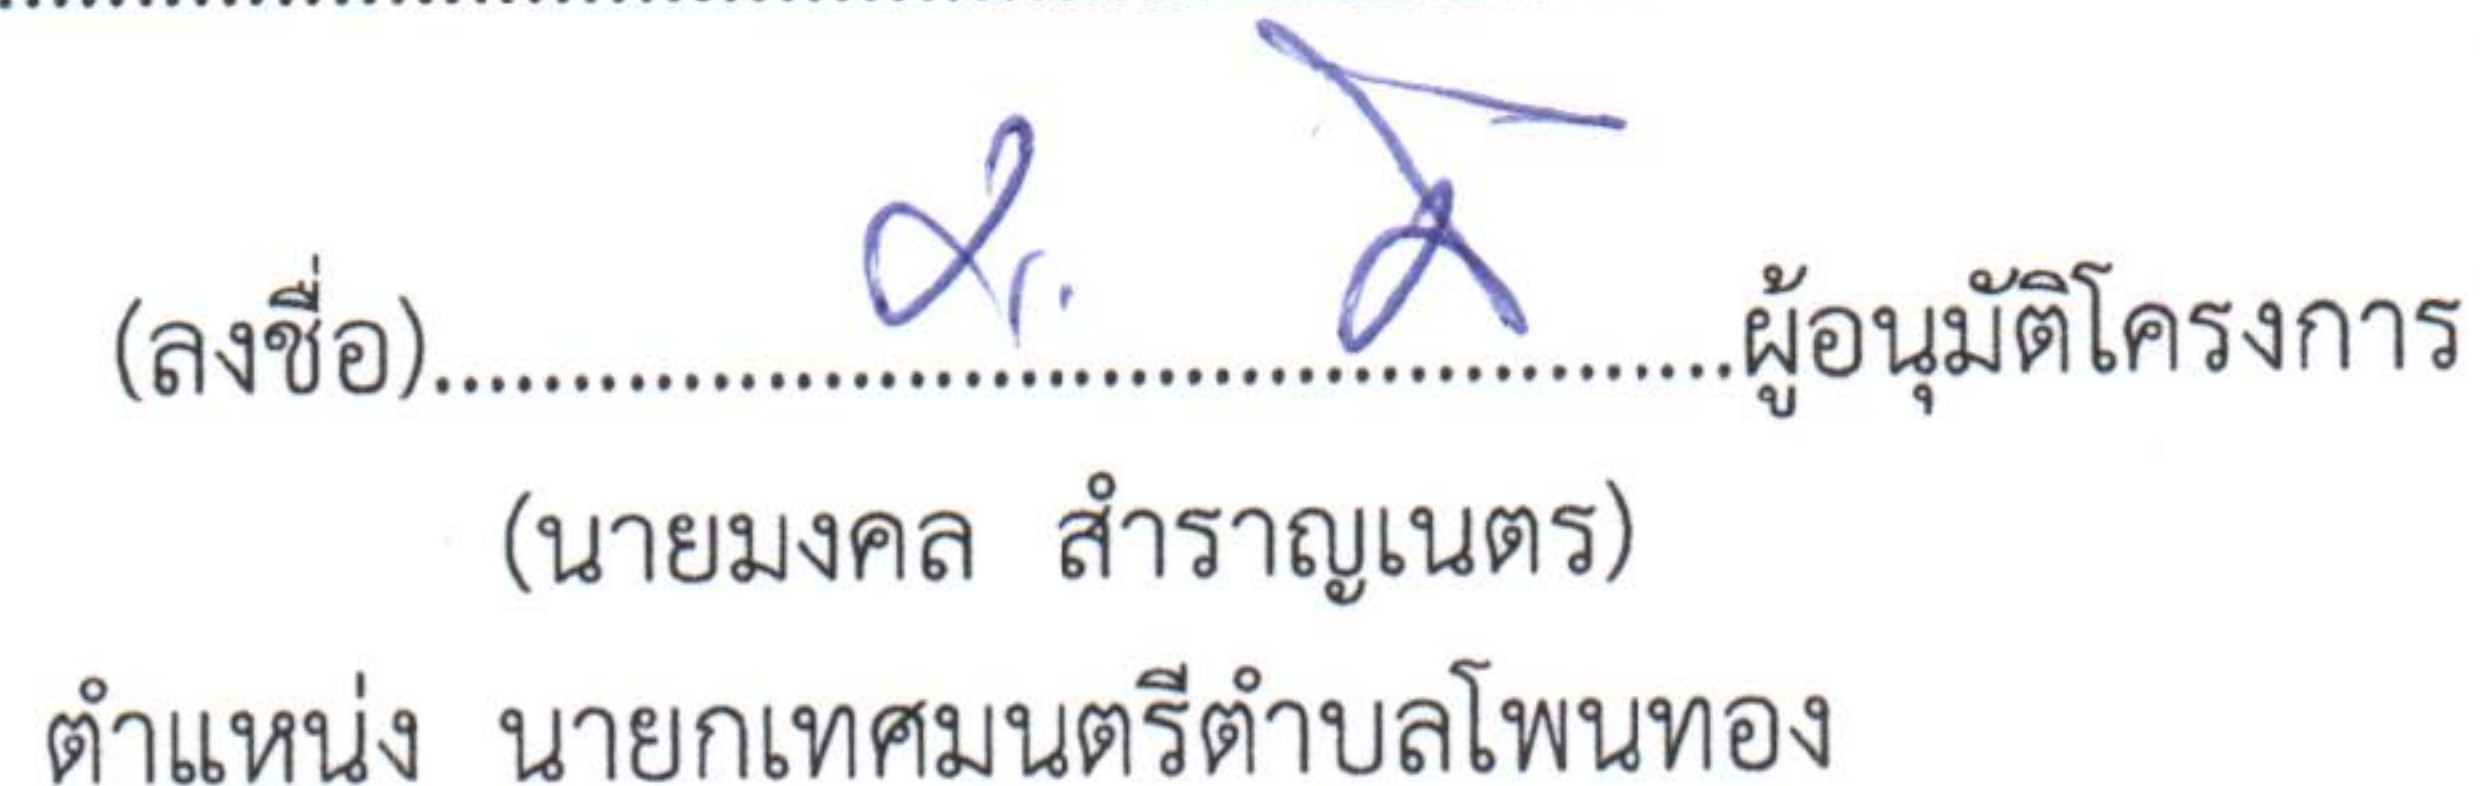 (ลงชื่อ)..................................................ผู้อนุมัติโครงการ
(นายมงคล สำราญเนตร)
ตำแหน่ง นายกเทศมนตรีตำบลโพนทอง